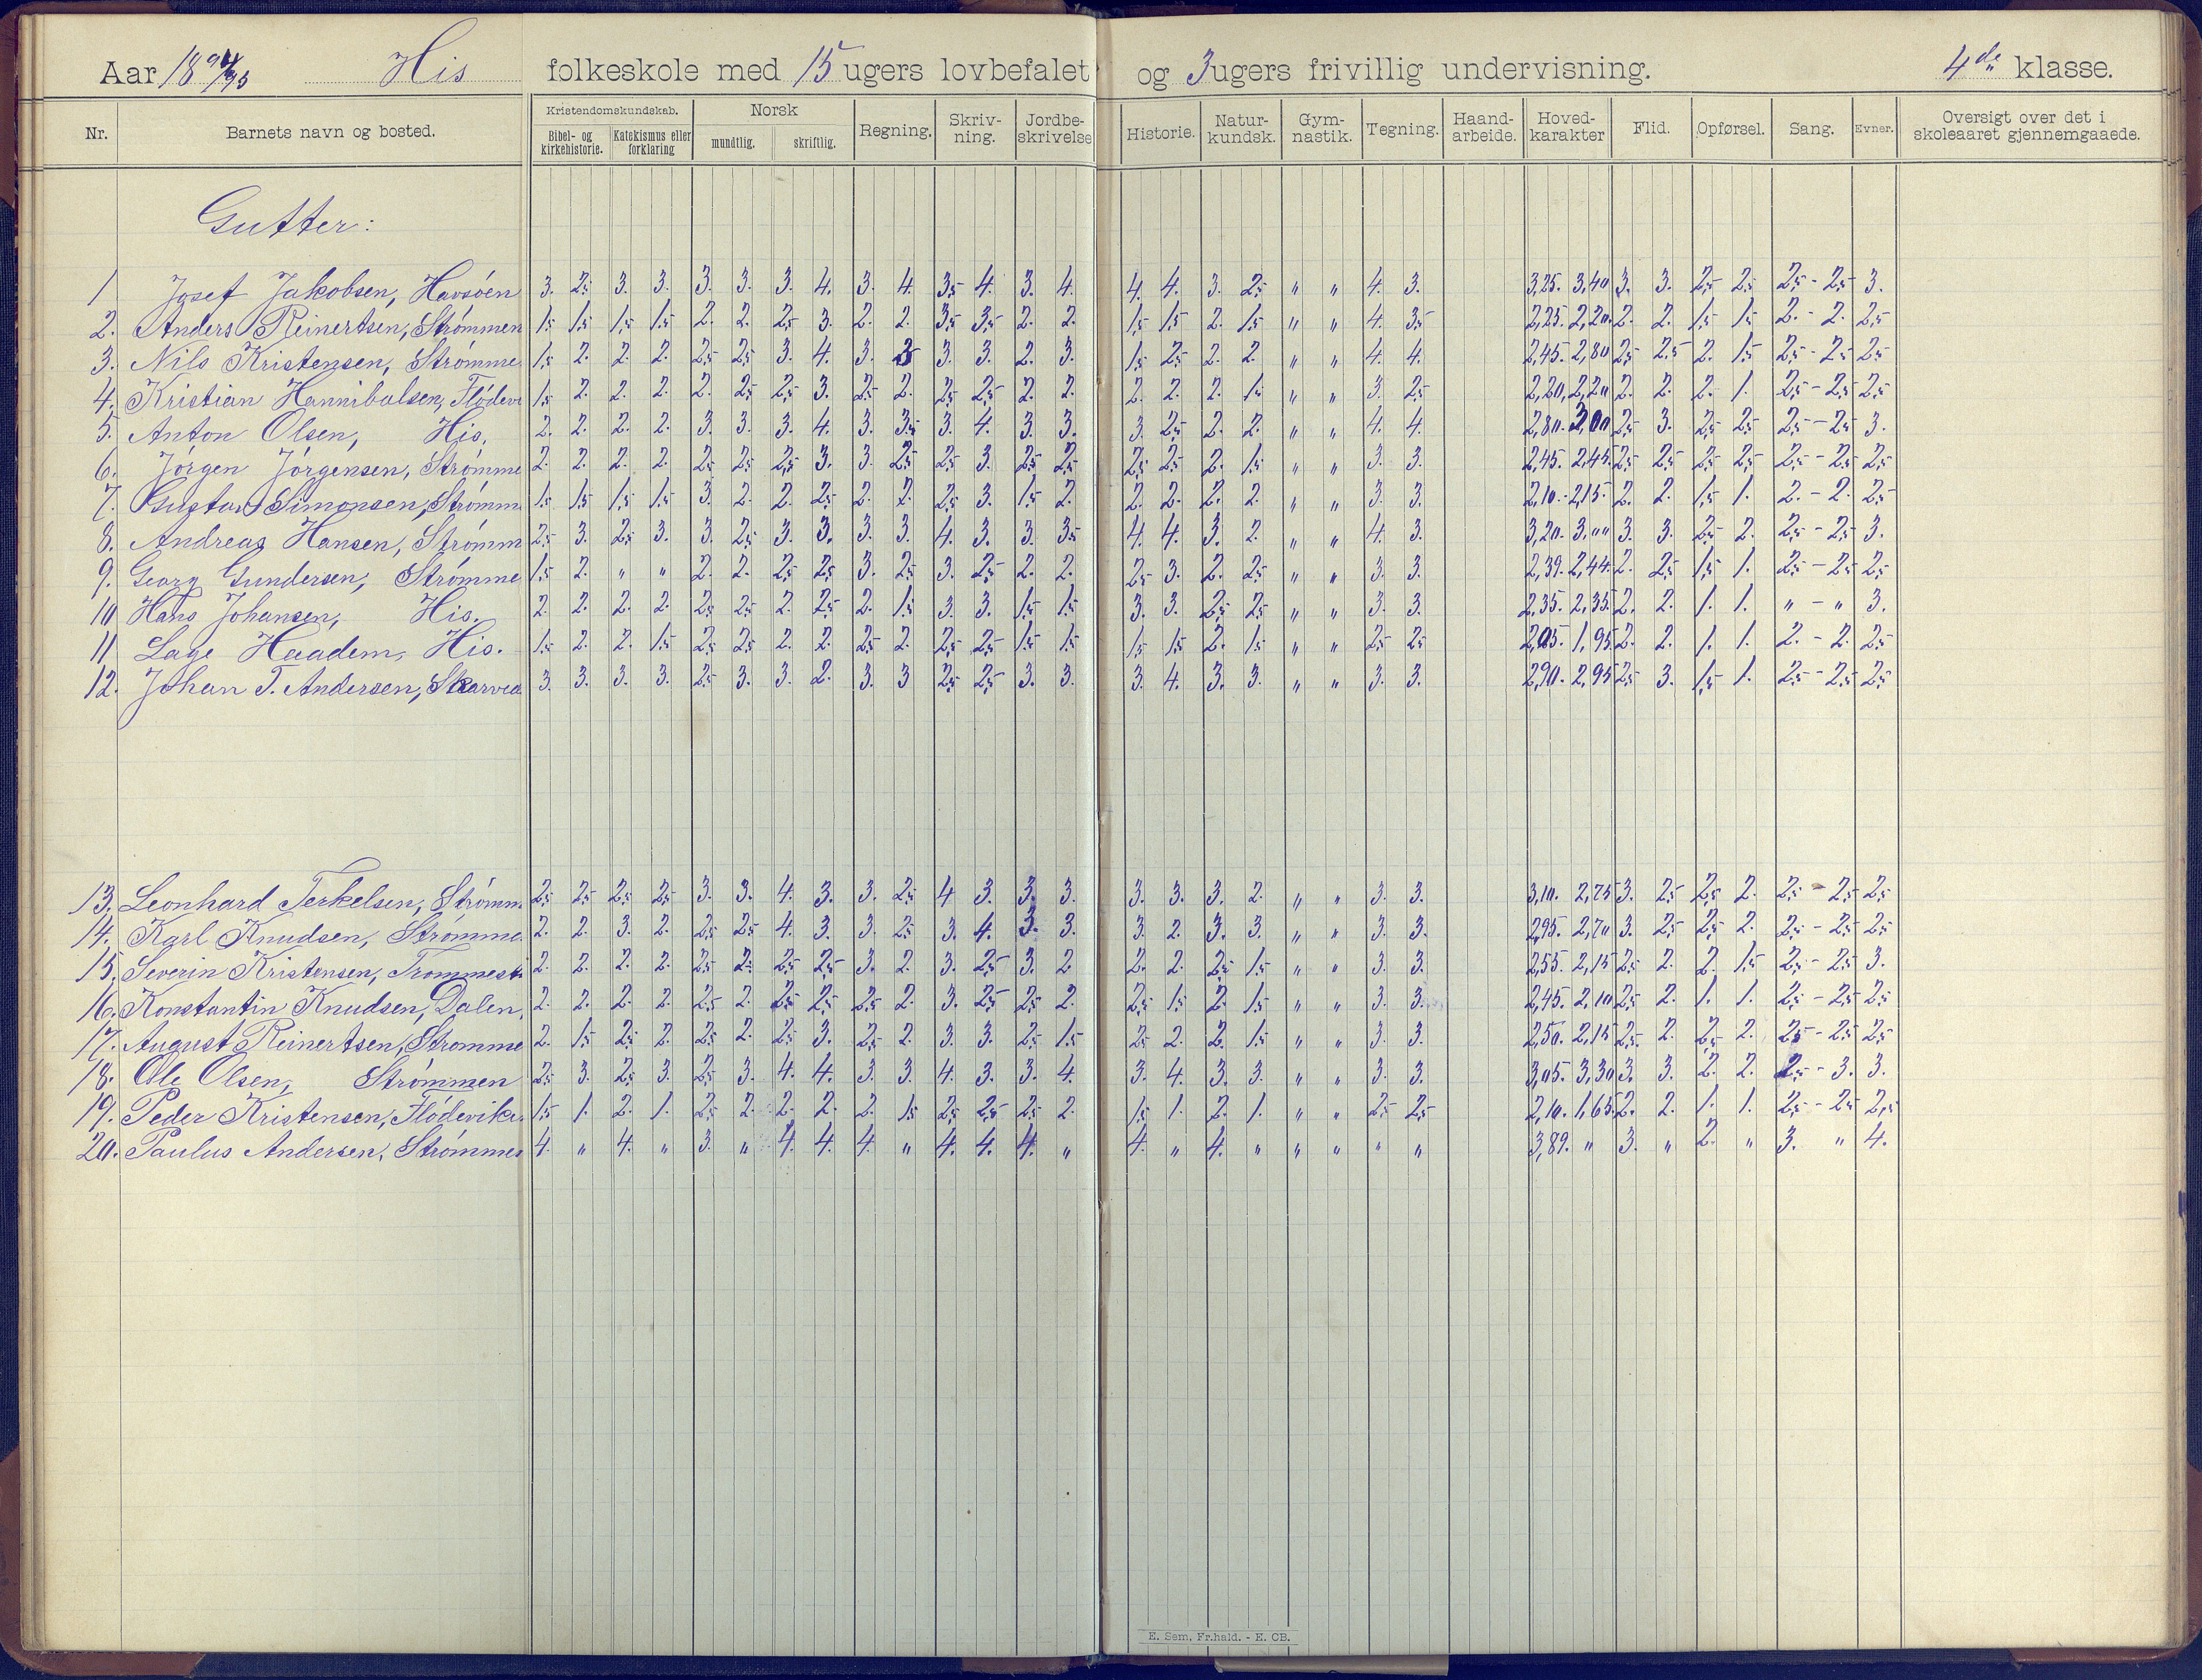 Aar 1894/95 His folkeskole med 15 ugers lovbefalet og 3 ugers frivillig undervisning. 4de klasse.
Nr. Barnets navn og bosted. Kristendomskundskab. Bibel- og kirkehistorie. Katekismus eller forklaring Norsk mundtlig. skriftlig. Regning. Skriv-ning. Jordbe-skrivelse Historie. Natur-kundsk. Gym-nastik. Tegning. Haand-arbeide. Hoved-karakter Flid. Opførsel. Sang. Evner. Oversigt over det i skoleaaret gjennemgaaede.
Gutter:
1 Josef Jakobsen, Havsöen 3. 2,5 3. 3. 3. 3. 3. 4. 3. 4. 3,5 4. 3. 4. 4. 4. 3. 2,5 " " 4. 3. 3,25. 3,40 3. 3. 2,5 2,5 2,5 - 2,5 3.
2. Anders Reinertsen, Strömmen 1,5 1,5 1,5 1,5 2. 2. 2,5 3. 2. 2. 3,5 3,5 2. 2. 1,5 1,5 2. 1,5 " " 4. 3,5 2,25. 2,20. 2. 2. 1,5 1,5 2. - 2. 2,5
3. Nils Kristensen, Strömme 1,5 2. 2. 2. 2,5 2,5 3. 4. 3. 3. 3. 2. 3. 1,5 2,5 2. 2. " " 4. 4. 2,45. 2,80 2,5 2,5 2. 1,5 2,5 - 2,5 2,5
4. Kristian Hannibalsen, Flödevi 1,5 2. 2. 2. 2. 2,5 2,5 3. 2,5 2. 2,5 2,5 2. 2. 2. 2. 2. 1,5 " " 3. 2,5 2,20, 2,20 2. 2. 2. 1. 2,5 - 2,5 2,5
5. Anton Olsen, His. 2. 2. 2. 2. 3. 3. 3. 4. 3. 3,5 3. 4. 3. 3. 3. 2,5 2. 2. " " 4. 4. 2,80. 3,00 2,5 3. 2,5 2,5 2,5 - 2,5 3.
6. Jörgen Jörgensen, Strömme 2. 2. 2. 2. 2,5 2,5 2,5 3. 3. 2,5 2,5 3. 2,5 2,5 2,5 2,5 2. 1,5 " " 3. 3. 2,45. 2,45. 2,5 2,5 2,5 2,5 2,5 - 2,5 2,5
7. Gustav Simonsen, Strömm 1,5 1,5 1,5 1,5 3. 2. 2. 2,5 2. 2. 2,5 3. 1,5 2. 2. 2. 2. 2. " " 3. 3. 2,10. - 2,15. 2. 2. 1,5 1. 2. - 2. 2,5
8. Andreas Hansen, Strömm 2,5 3. 2,5 3. 3. 2,5 3. 3. 3. 3. 4. 3. 3. 3,5 4. 4. 3. 2. " " 4. 3. 3,20. 3,00 3. 3. 2,5 2. 2,5 - 2,5 3.
9. Georg Gundersen, Strömme 1,5 2. " " 2. 2. 2,5 2,5 3. 2,5 3. 2,5 2. 2. 2,5 3. 2. 2,5 " " 3. 3. 2,39. 2,44. 2. 2,5 1,5 1. 2,5 - 2,5 2,5
10 Hans Johansen, His. 2. 2. 2. 2. 2,5 2,5 2. 2,5 2. 1,5 3. 3. 1,5 1,5 3. 3. 2,5 2,5 " " 3. 3. 2,35. 2,35. 2. 2. 1. 1. " - " 3.
11 Lage Haadem, His. 1,5 2. 2. 1,5 2,5 2,5 2. 2. 2,5 2. 2,5 2,5 1,5 1,5 1,5 1,5 2. 1,5 " " 2,5 2,5 2,05. 1,95 2. 2. 1. 1. 2. - 2. 2,5
12. Johan T. Andersen, Skarved 3. 3. 3. 3. 2,5 3. 3. 2. 3. 3 2,5 2,5 3. 3. 3. 4. 3. 3. " " 3. 3. 2,90. 2,95 2,5 3. 1,5 1. 2,5 - 2,5 2,5
13. Leonhard Terkelsen, Strömm 2,5 2,5 2,5 2,5 3. 3. 4. 3. 3. 2,5 4 3. 3. 3. 3. 3. 3. 2. " " 3. 3. 3,10. 2,75 3. 2,5 2,5 2. 2,5 - 2,5 2,5
14. Karl Knudsen, Strömme 2. 2. 3. 2. 2,5 2,5 4. 3. 3. 2,5 3. 4. 3. 3. 3. 2. 3. 3. " " 3. 3. 2,95. 2,70 3. 2,5 2,5 2. 2,5 - 2,5 2,5
15. Severin Kristensen, Trommest 2. 2. 2. 2. 2,5 2. 2,5 2,5 3. 2. 3. 2,5 3. 2 2. 2. 2,5 1,5 " " 3. 3. 2,55. 2,15 2,5 2. 2. 1,5 2,5 - 2,5 3.
16. Konstantin Knudsen, Dalen, 2. 2. 2. 2. 2,5 2. 2,5 2,5 2,5 2. 3. 2,5 2,5 2. 2,5 1,5 2. 1,5 " " 3. 3. 2,45. 2,10 2,5 2. 1. 1. 2,5 - 2,5 2,5
17. August Reinertsen, Strömme 2. 1,5 2,5 2. 2,5 2. 2,5 3. 2,5 2. 3. 3. 2,5 1,5 2,5 2. 2. 1,5 " " 3. 3. 2,50. 2,15 2,5 2. 2,5 2. 2,5 - 2,5 2,5
18. Ole Olsen, Strömmen 2,5 3. 2,5 3. 2,5 3. 4. 4. 3. 3. 4. 3. 3. 4. 3. 4. 3. 3. " " 3. 3. 3,05. 3,30 3. 3. 2. 2. 2,5 - 3. 3.
19. Peder Kristensen, Flödevike 1,5 1. 2. 1. 2,5 2. 2. 2. 2. 1,5 2,5 2,5 2,5 2. 1,5 1. 2. 1. " " 2,5 2,5 2,10. 1,65. 2. 2. 1. 1. 2,5 - 2,5 2,5
20. Paulus Andersen, Strömmen 4. " 4. " 3. " 4. 4. 4. " 4. 4. 4. " 4. " 4. " " " " " 3,89. " 3. " 2. " 3. " 4.
E. Sem, Fr.hald. - E. CB.